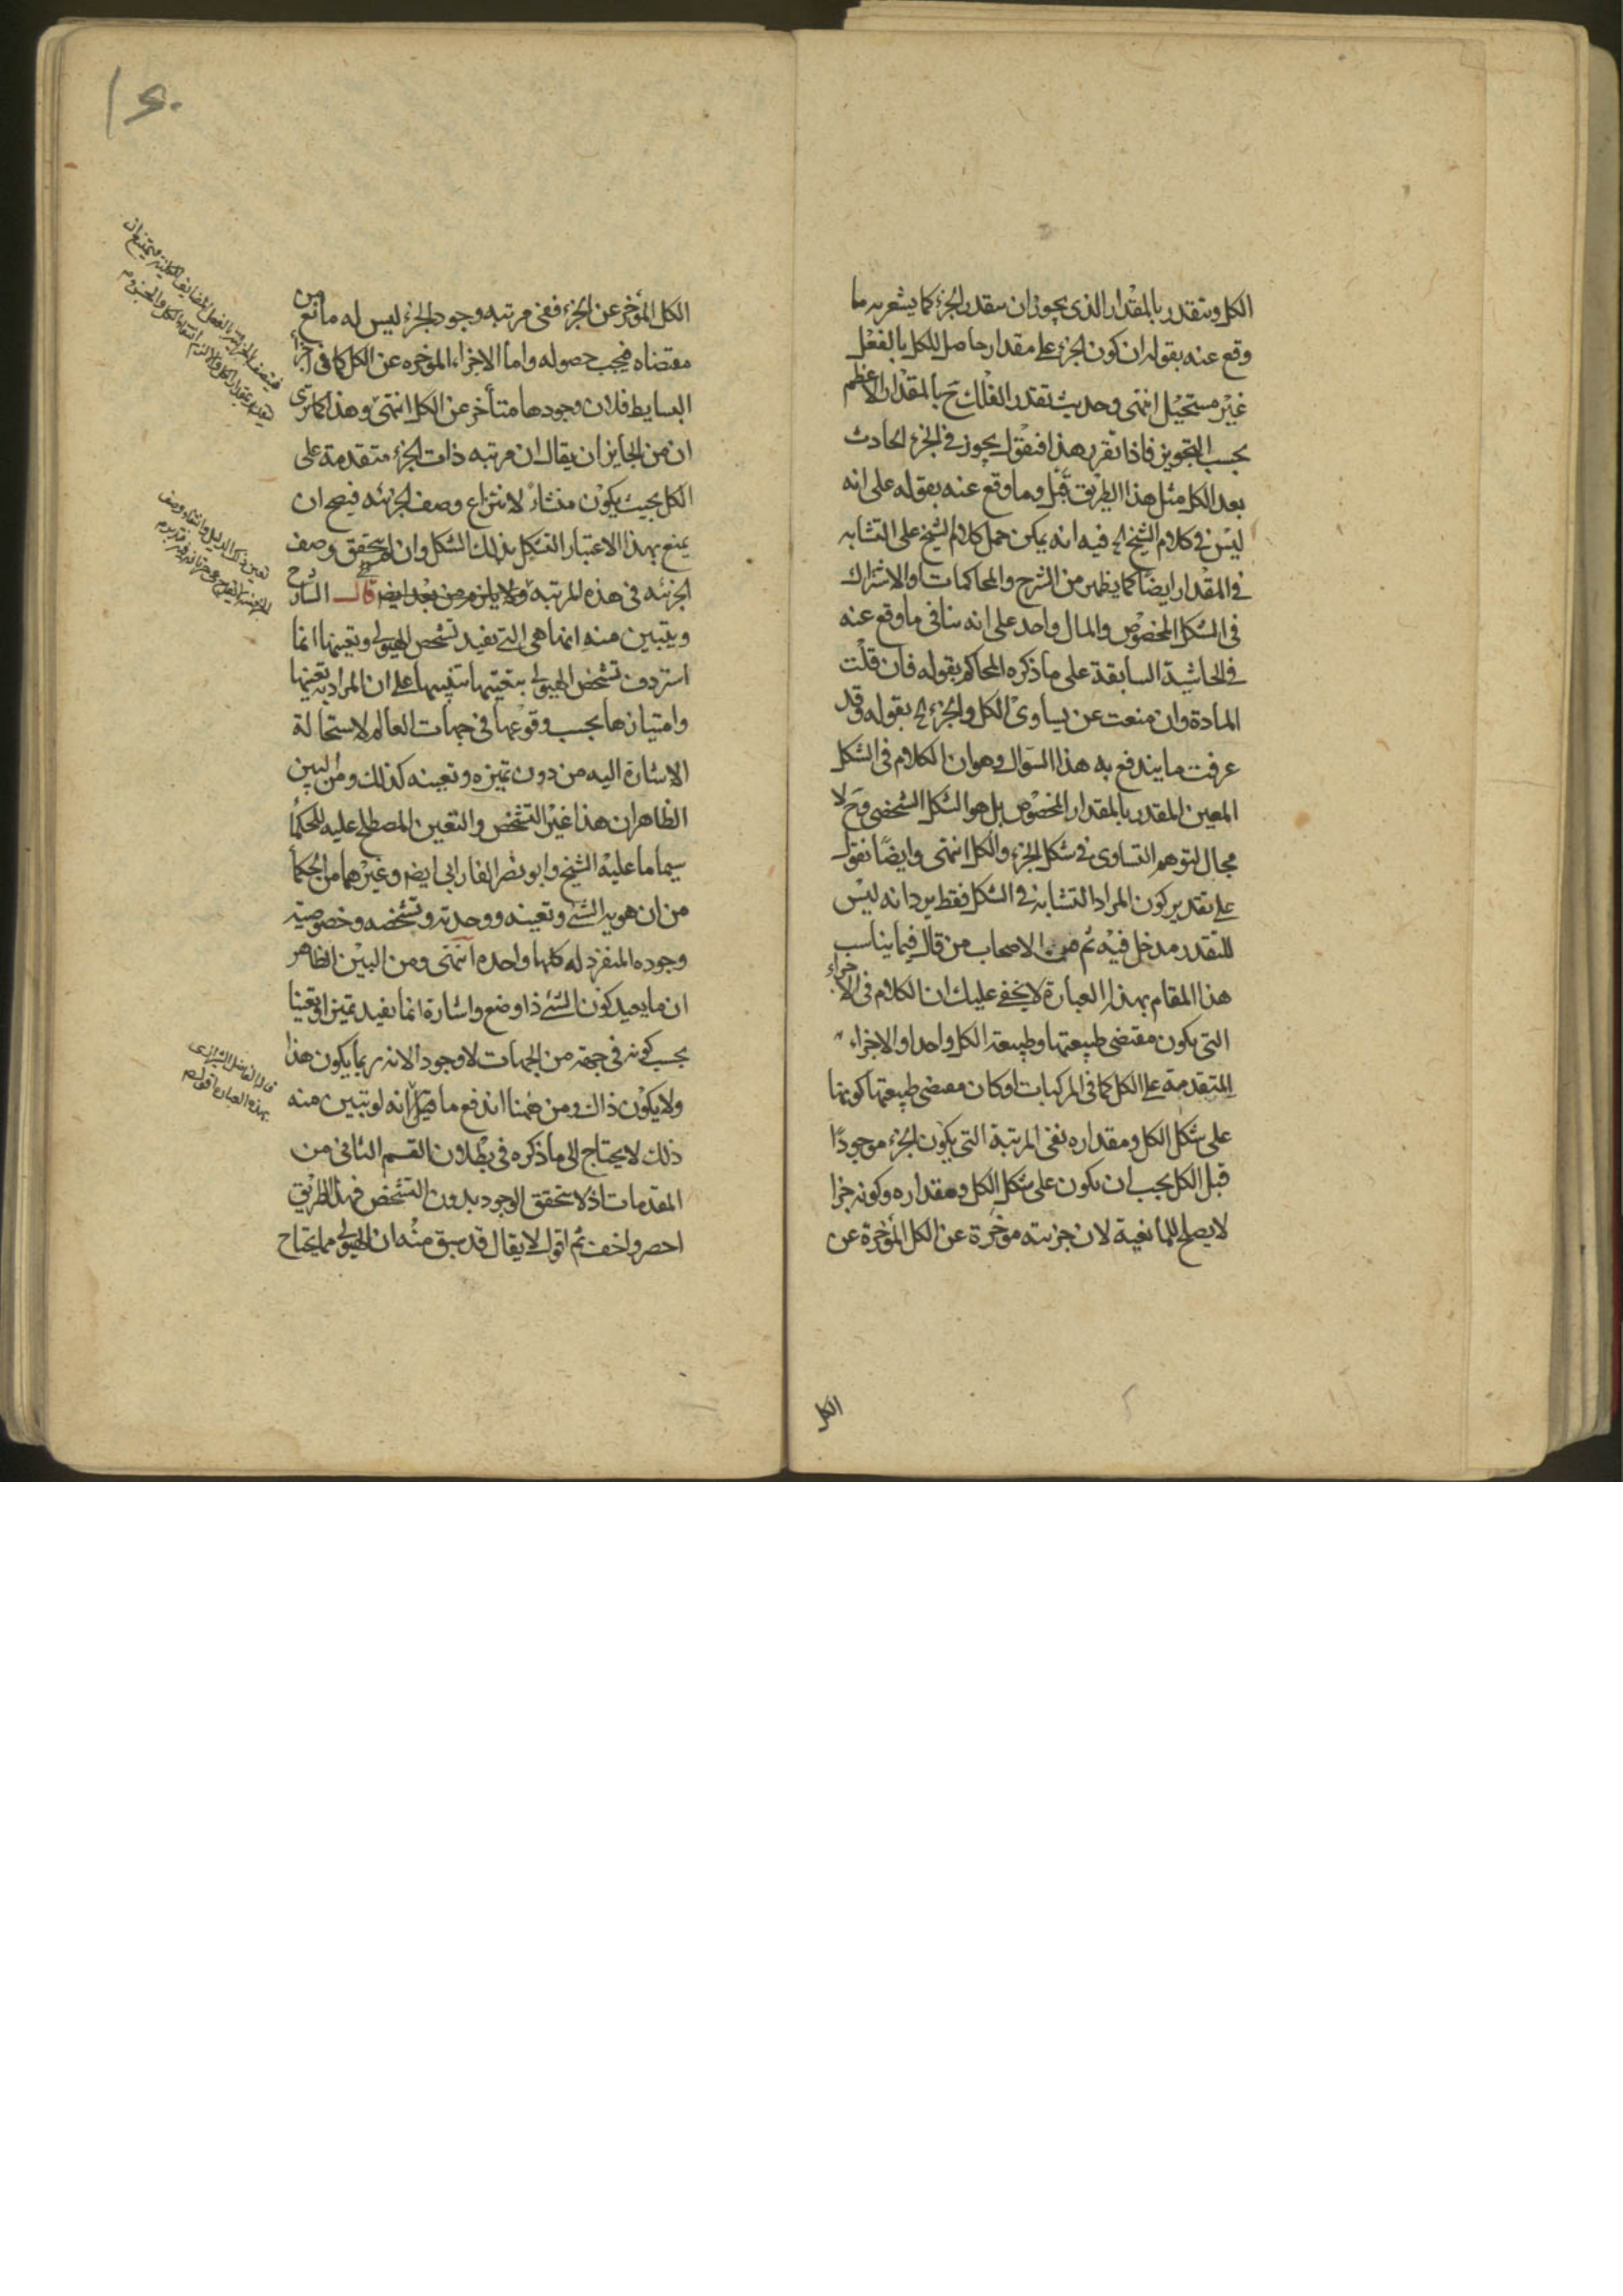 الكل ويتقدر بالمقدار الذى يجوز ان يتقدر الجزء كما يشعر به ما
وقع عنه بقوله ان كون الجزء على مقدار حاصل للكل بالفعل
غير مستحيل انتهى وحديث تقدر الفلك ح بالمقدار الاعظم
بحسب التجويز فاذا تقرر هذا فنقول يجوز فى الجزء الحادث
بعد الكل مثل هذا الطريق قيل وما وقع عنه بقوله على انه
ليس فى كلام الشيخ الخ فيه انه يمكن حمل كلام الشيخ على التشابه
فى المقدار ايضا كما يظهر من الشرح والمحاكمات والاشتراك
فى الشكل المخصوص والمال واحد على انه ينافى ما وقع عنه
فى الحاشية السابقة على ما ذكره المحاكم بقوله فان قلت
المادة وان منعت عن تساوى الكل والجزء الخ بقوله وقد
عرفت ما يندفع به هذا السوال وهو ان الكلام فى الشكل
المعين المقدر بالمقدار المخصوص بل هو الشكل الشخصى وح لا
مجال لتوهم التساوى فى شكل الجزء والكل انتهى وايضا نقول
على تقدير كون المراد التشابه فى الشكل فقط يرد انه ليس
للتقدر مدخل فيه ثم من الاصحاب من قال فيما يناسب
هذا المقام بهذه العبارة لا يخفى عليك ان الكلام فى الاجزاء
التى يكون مقتضى طبيعتها وطبيعة الكل واحدا والاجزاء
المتقدمة على الكل كما فى المركبات لو كان مقتضى طبيعتها كونها
على شكل الكل ومقداره ففى المرتبة التى يكون الجزء موجودا
قبل الكل يجب ان يكون على شكل الكل ومقداره وكونه جزا
لا يصلح للمانعية لان جزئيته موخرة عن الكل المؤخرة عن
الكل
الكل المؤخر عن الجزء ففى مرتبه وجود الجزء ليس له مانع من
مقتضاه فيجب حصوله واما الاجزاء الموخره عن الكل كما فى اجزاء
البسايط فلان وجودها متأخر عن الكل انتهى وهذا كما ترى
ان من الجايز ان يقال ان مرتبه ذات الجزء متقدمة على
الكل بحيث يكون منشأ لانتزاع وصف الجزئيه فيصح ان
يمنع بهذا الاعتبار التشكل بذلك الشكل وان لم يتحقق وصف
الجزئيه فى هذه المرتبه ولا يلزم من بعد ايضا قال الشارح
ويتبين منه انها هى التى تفيد تشخص الهيولى وتعينها انما
استردف تشخص الهيولى بتعينها تنبيها على ان المراد به تعينها
وامتيازها بحسب وقوعها فى جهات العالم لاستحالة
الاشارة اليه من دون تميزه وتعينه كذلك ومن البين
الظاهر ان هذا غير التشخص والتعين المصطلح عليه للحكما
سيما ما عليه الشيخ وابو نصر الفارابى ايضا وغيرهما من الحكما
من ان هوية الشئ وتعينه ووحدته وتشخصه وخصوصية
وجوده المنفرد له كلها واحدة انتهى ومن البين الظاهر
ان ما يفيد كون الشئ ذا وضع واشارة انما يفيد تميزا وتعينا
بحسب كونه فى جهة من الجهات لا وجودا لانه ربما يكون هذا
ولا يكون ذاك ومن ههنا اندفع ما قيل انه لو يتبين منه
ذلك لا يحتاج الى ما ذكره فى بطلان القسم الثانى من
المقدمات اذ لا يتحقق الوجود بدون التشخص فهذا الطريق
احصر واخف ثم اقول لا يقال قد سبق منه ان الهيولى مما يحتاج
قال الفاضل الشيرازى
بهذه العبارة اقول م